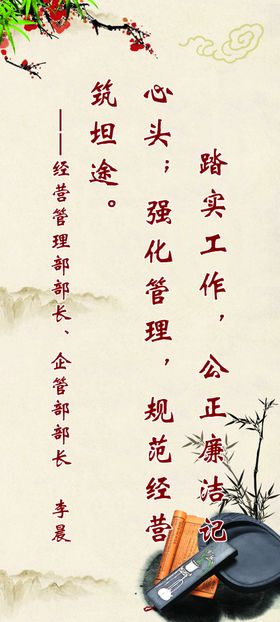 踏实工作，公正廉洁记
心头；强化管理，规范经营
筑坦途。
——经营管理部部长、企管部部长　李晨